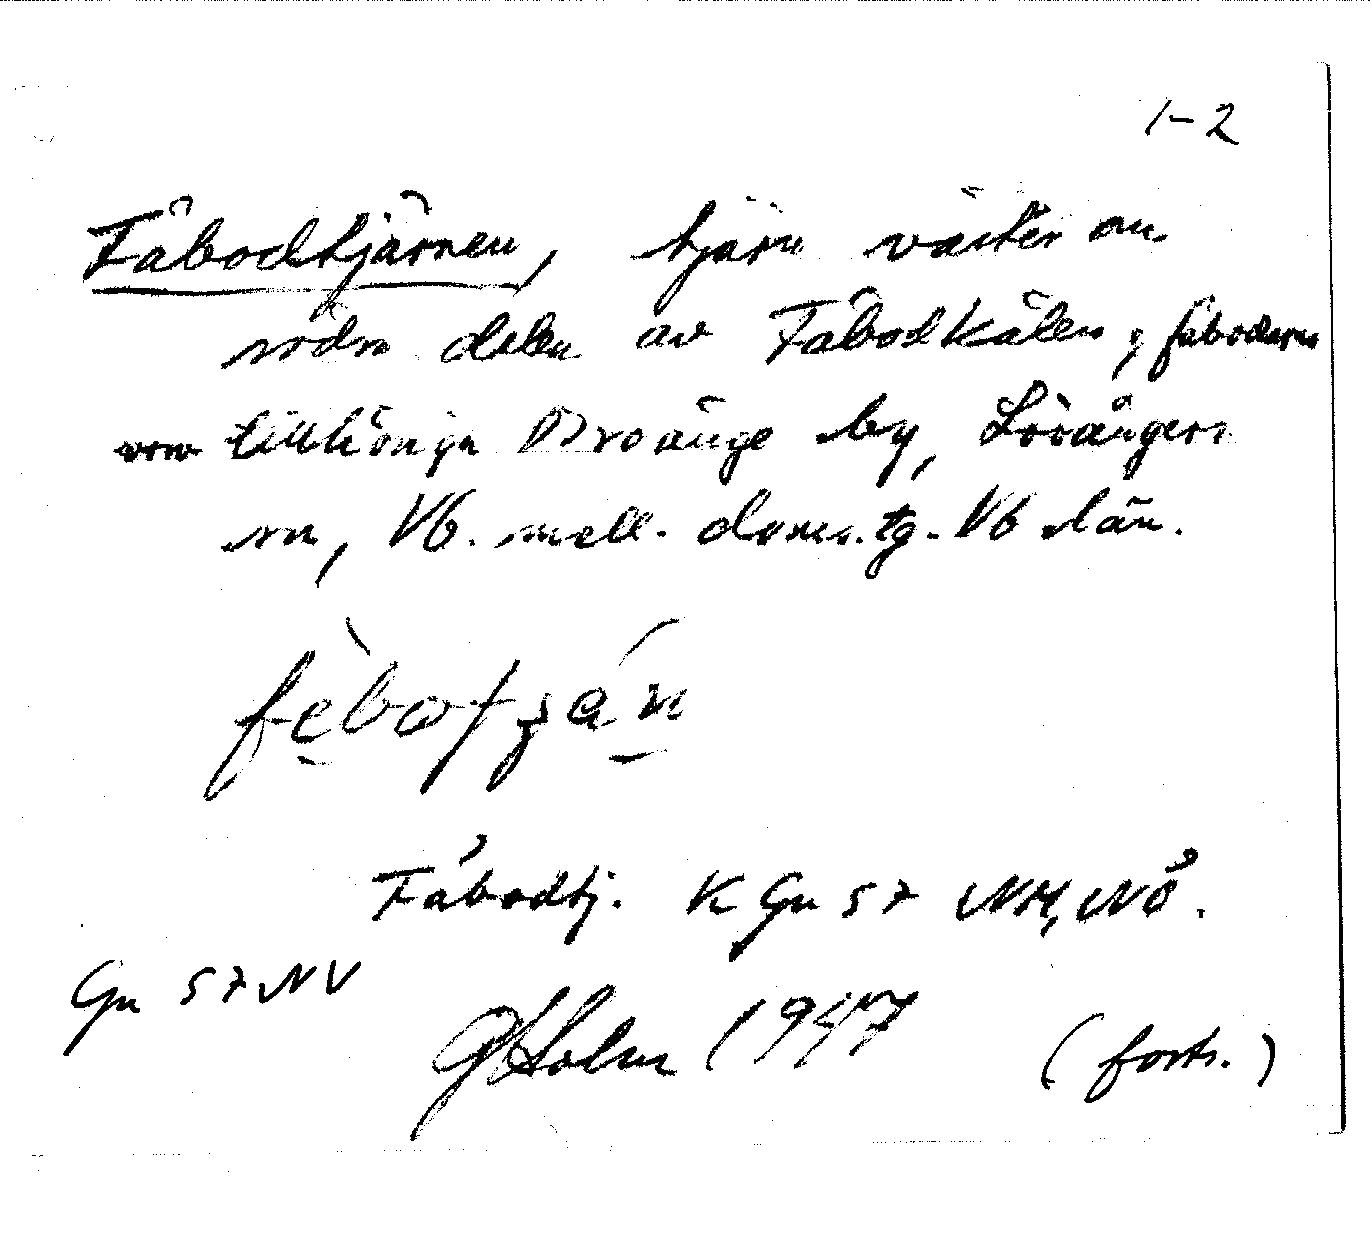 1-2
Fäbodtjärnen, tjärn väster om
södra delen av Fäbodkälen, fäbodarna
som tillhöriga Broänge by, Lövångers
sn, Vb. mell. doms.tg. Vb län.
Fäbodtj. K Gn 57 NM, NÖ.
Gn 57 NV
GHolm 1947 (forts.)